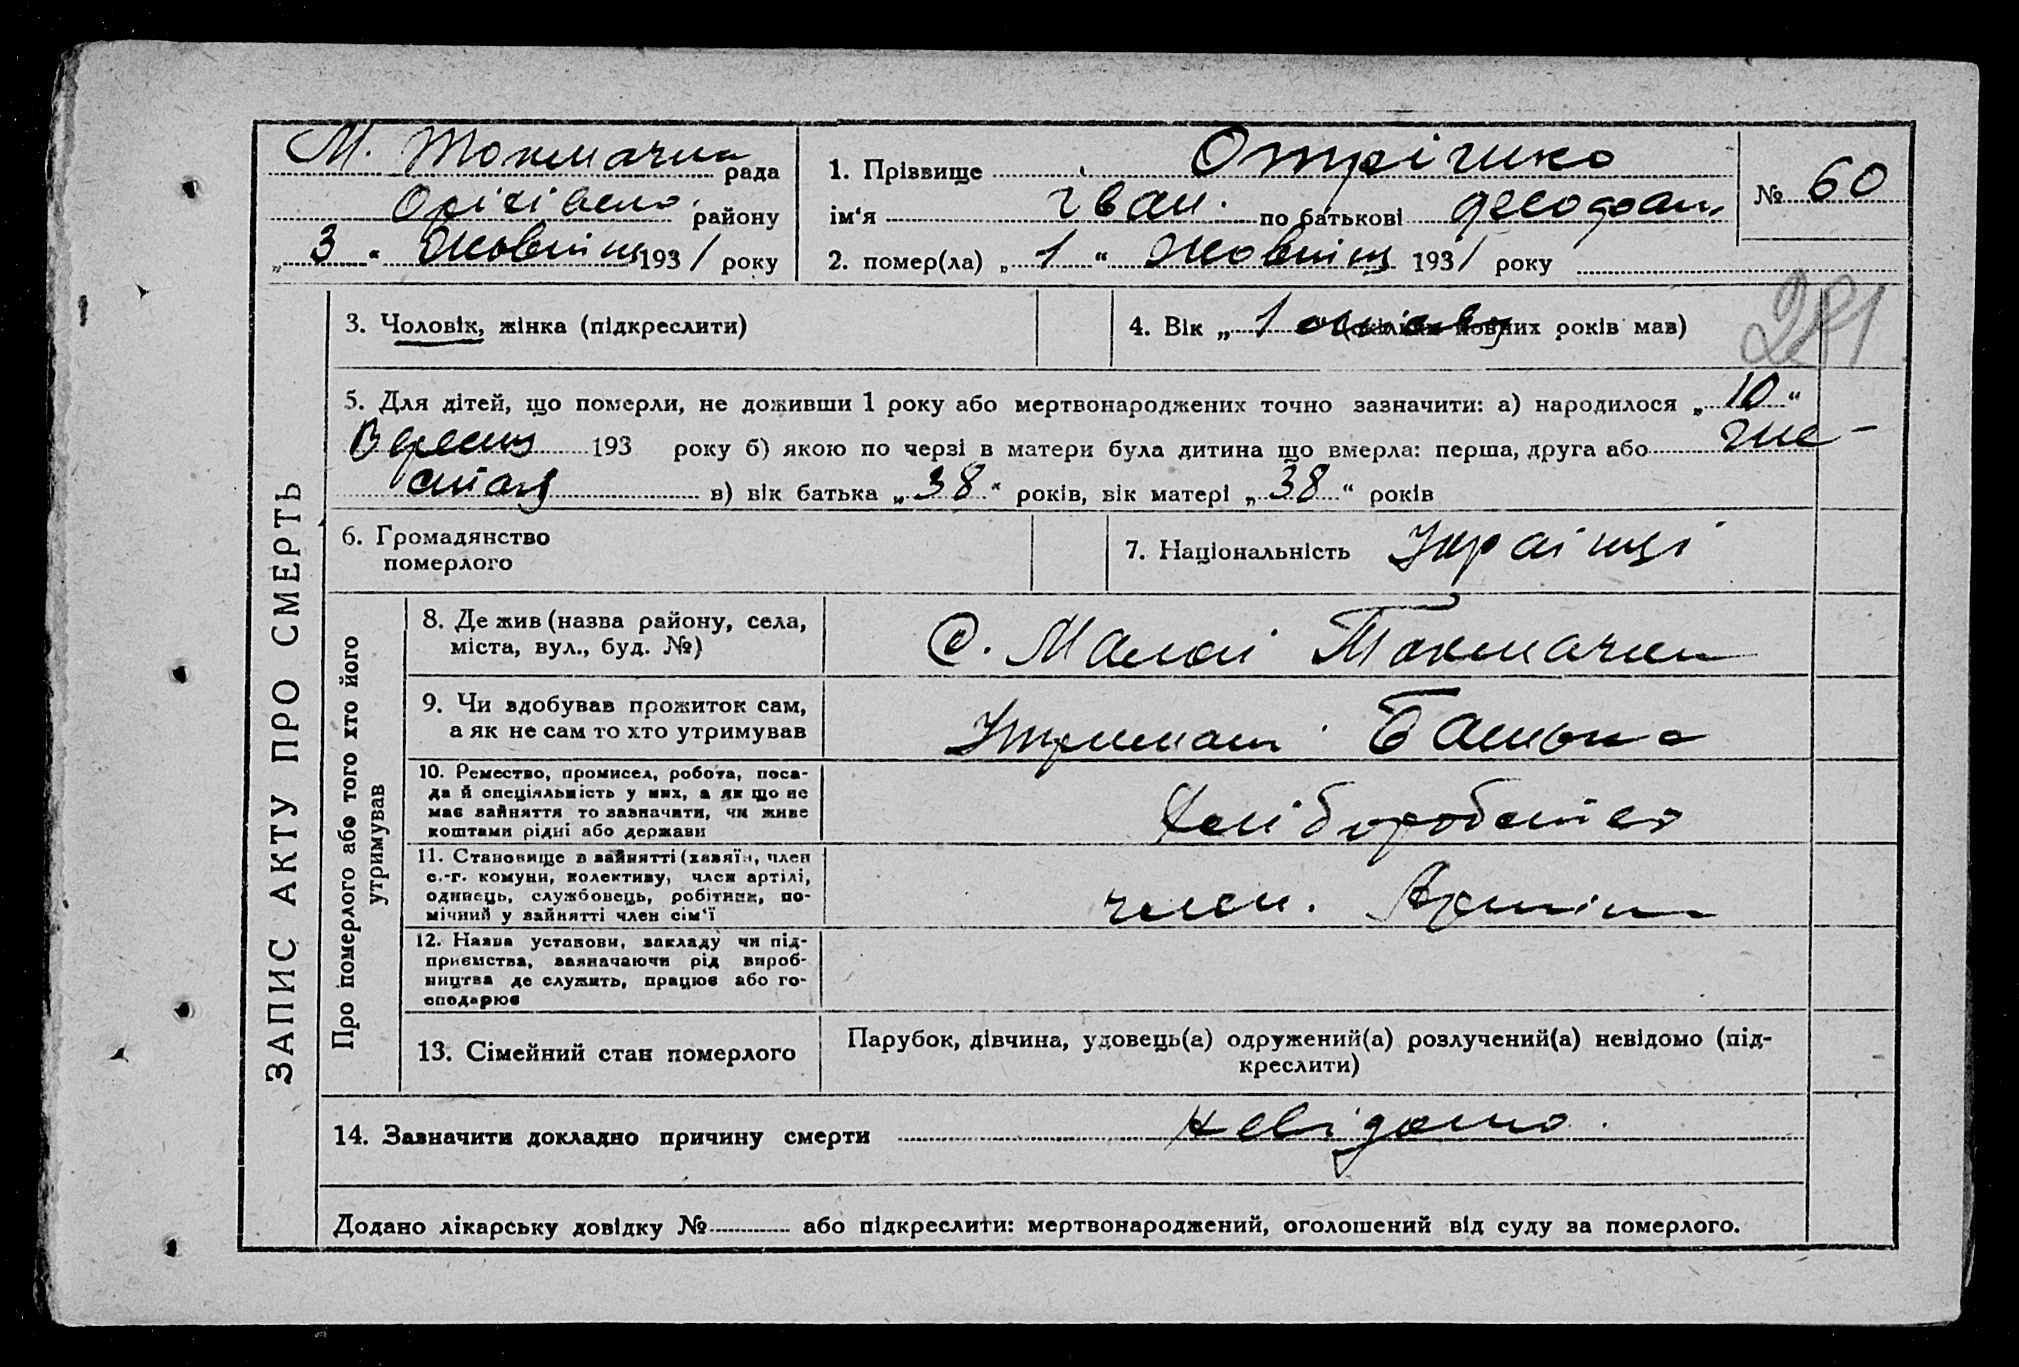 М. Токмачка рада
Орiхiвськ. району
„ 3 “ Жовтня 1931 року
1. Прізвище Отрішко
ім‘я Іван. по батькові Феофан.
№ 60
2. помер(ла) „ 1 “ Жовтня 1931 року
281
3. Чоловік, жінка (підкреслити)
4. Вік „ 1 (скільки повних років мав)
5. Для дітей, що померли, не доживши 1 року або мертвонароджених точно зазначити: а) народилося „ 10 “
Вересня 193 року б) якою по черзі в матери була дитина що вмерла: перша, друга або ше-
стая в) вік батька „ 38 “ років, вік матері „ 38 “ років
6. Громадянство
померлого
7. Національність Україці
ЗАПИС АКТУ ПРО СМЕРТЬ
Про померлого або того хто його
утримував
8. Де жив (назва району, села,
міста, вул., буд. №)
С. Малої Токмачки
9. Чи здобував прожиток сам,
а як не сам то хто утримував
Утриман. Батька
10. Ремество, промисел, робота, поса-
да й спеціяльність у них, а як що не
має зайняття то зазначити, чи живе
коштами рідні або держави
Хлібороб
11. Становище в зайнятті (хазяїн, член
с.-г. комуни, колективу, член артілі,
одинець, службовець, робітник, по-
мічний у зайнятті член сім‘ї
член. Артіли
12. Назва установи, закладу чи під-
приємства, зазначаючи рід вироб-
ництва де служить, працює або го-
сподарює
13. Сімейний стан померлого
Парубок, дівчина, удовець(а) одружений(а) розлучений(а) невідомо (під-
креслити)
14. Зазначити докладно причину смерти невідомо.
Додано лікарську довідку № або підкреслити: мертвонароджений, оголошений від суду за померлого.